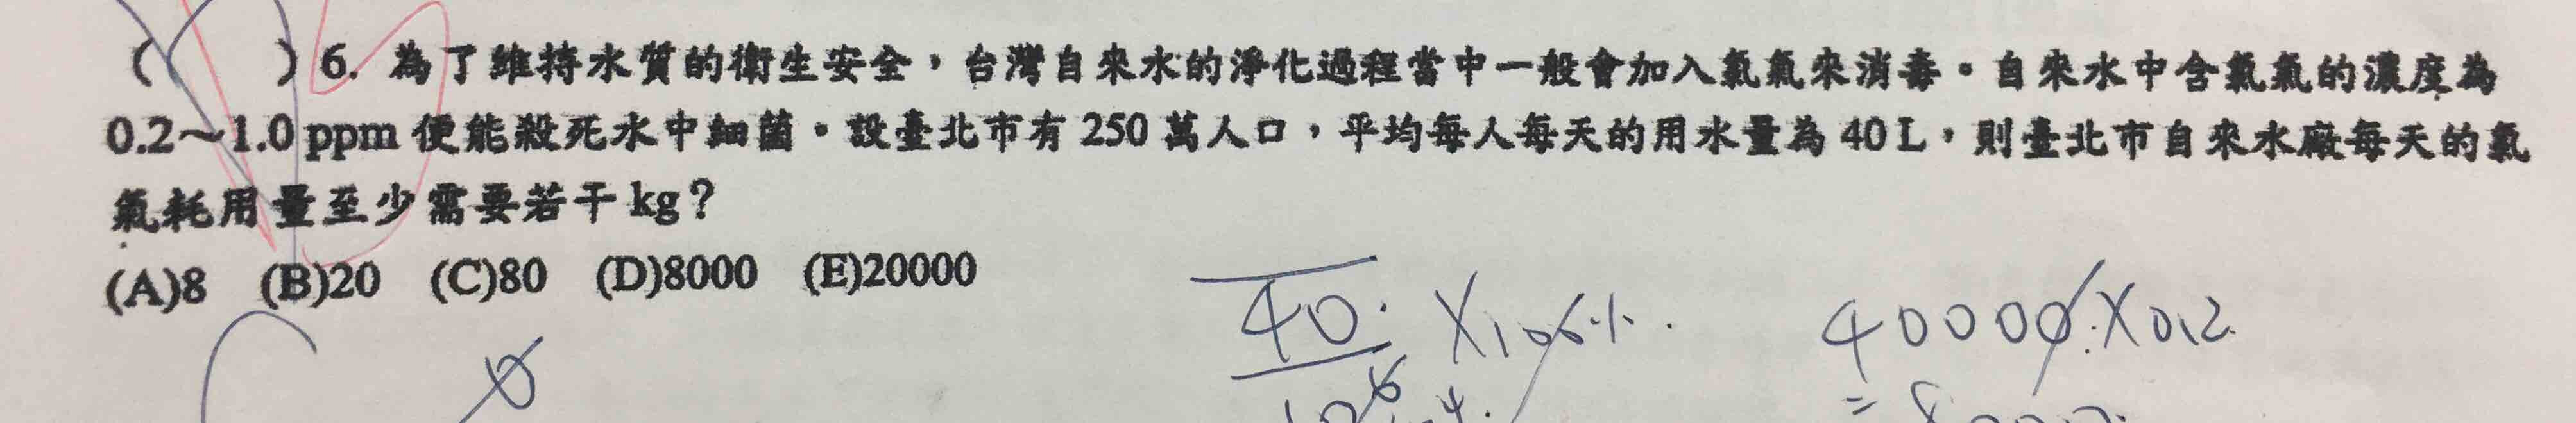 (　　) 6. 為了維持水質的衛生安全，台灣自來水的淨化過程當中一般會加入氯氣來消毒。自來水中含氯氣的濃度為
0.2～1.0 ppm 便能殺死水中細菌。設臺北市有 250 萬人口，平均每人每天的用水量為 40 L，則臺北市自來水廠每天的氯
氣耗用量至少需要若干 kg？
(A)8　(B)20　(C)80　(D)8000　(E)20000
40
40000×0.2